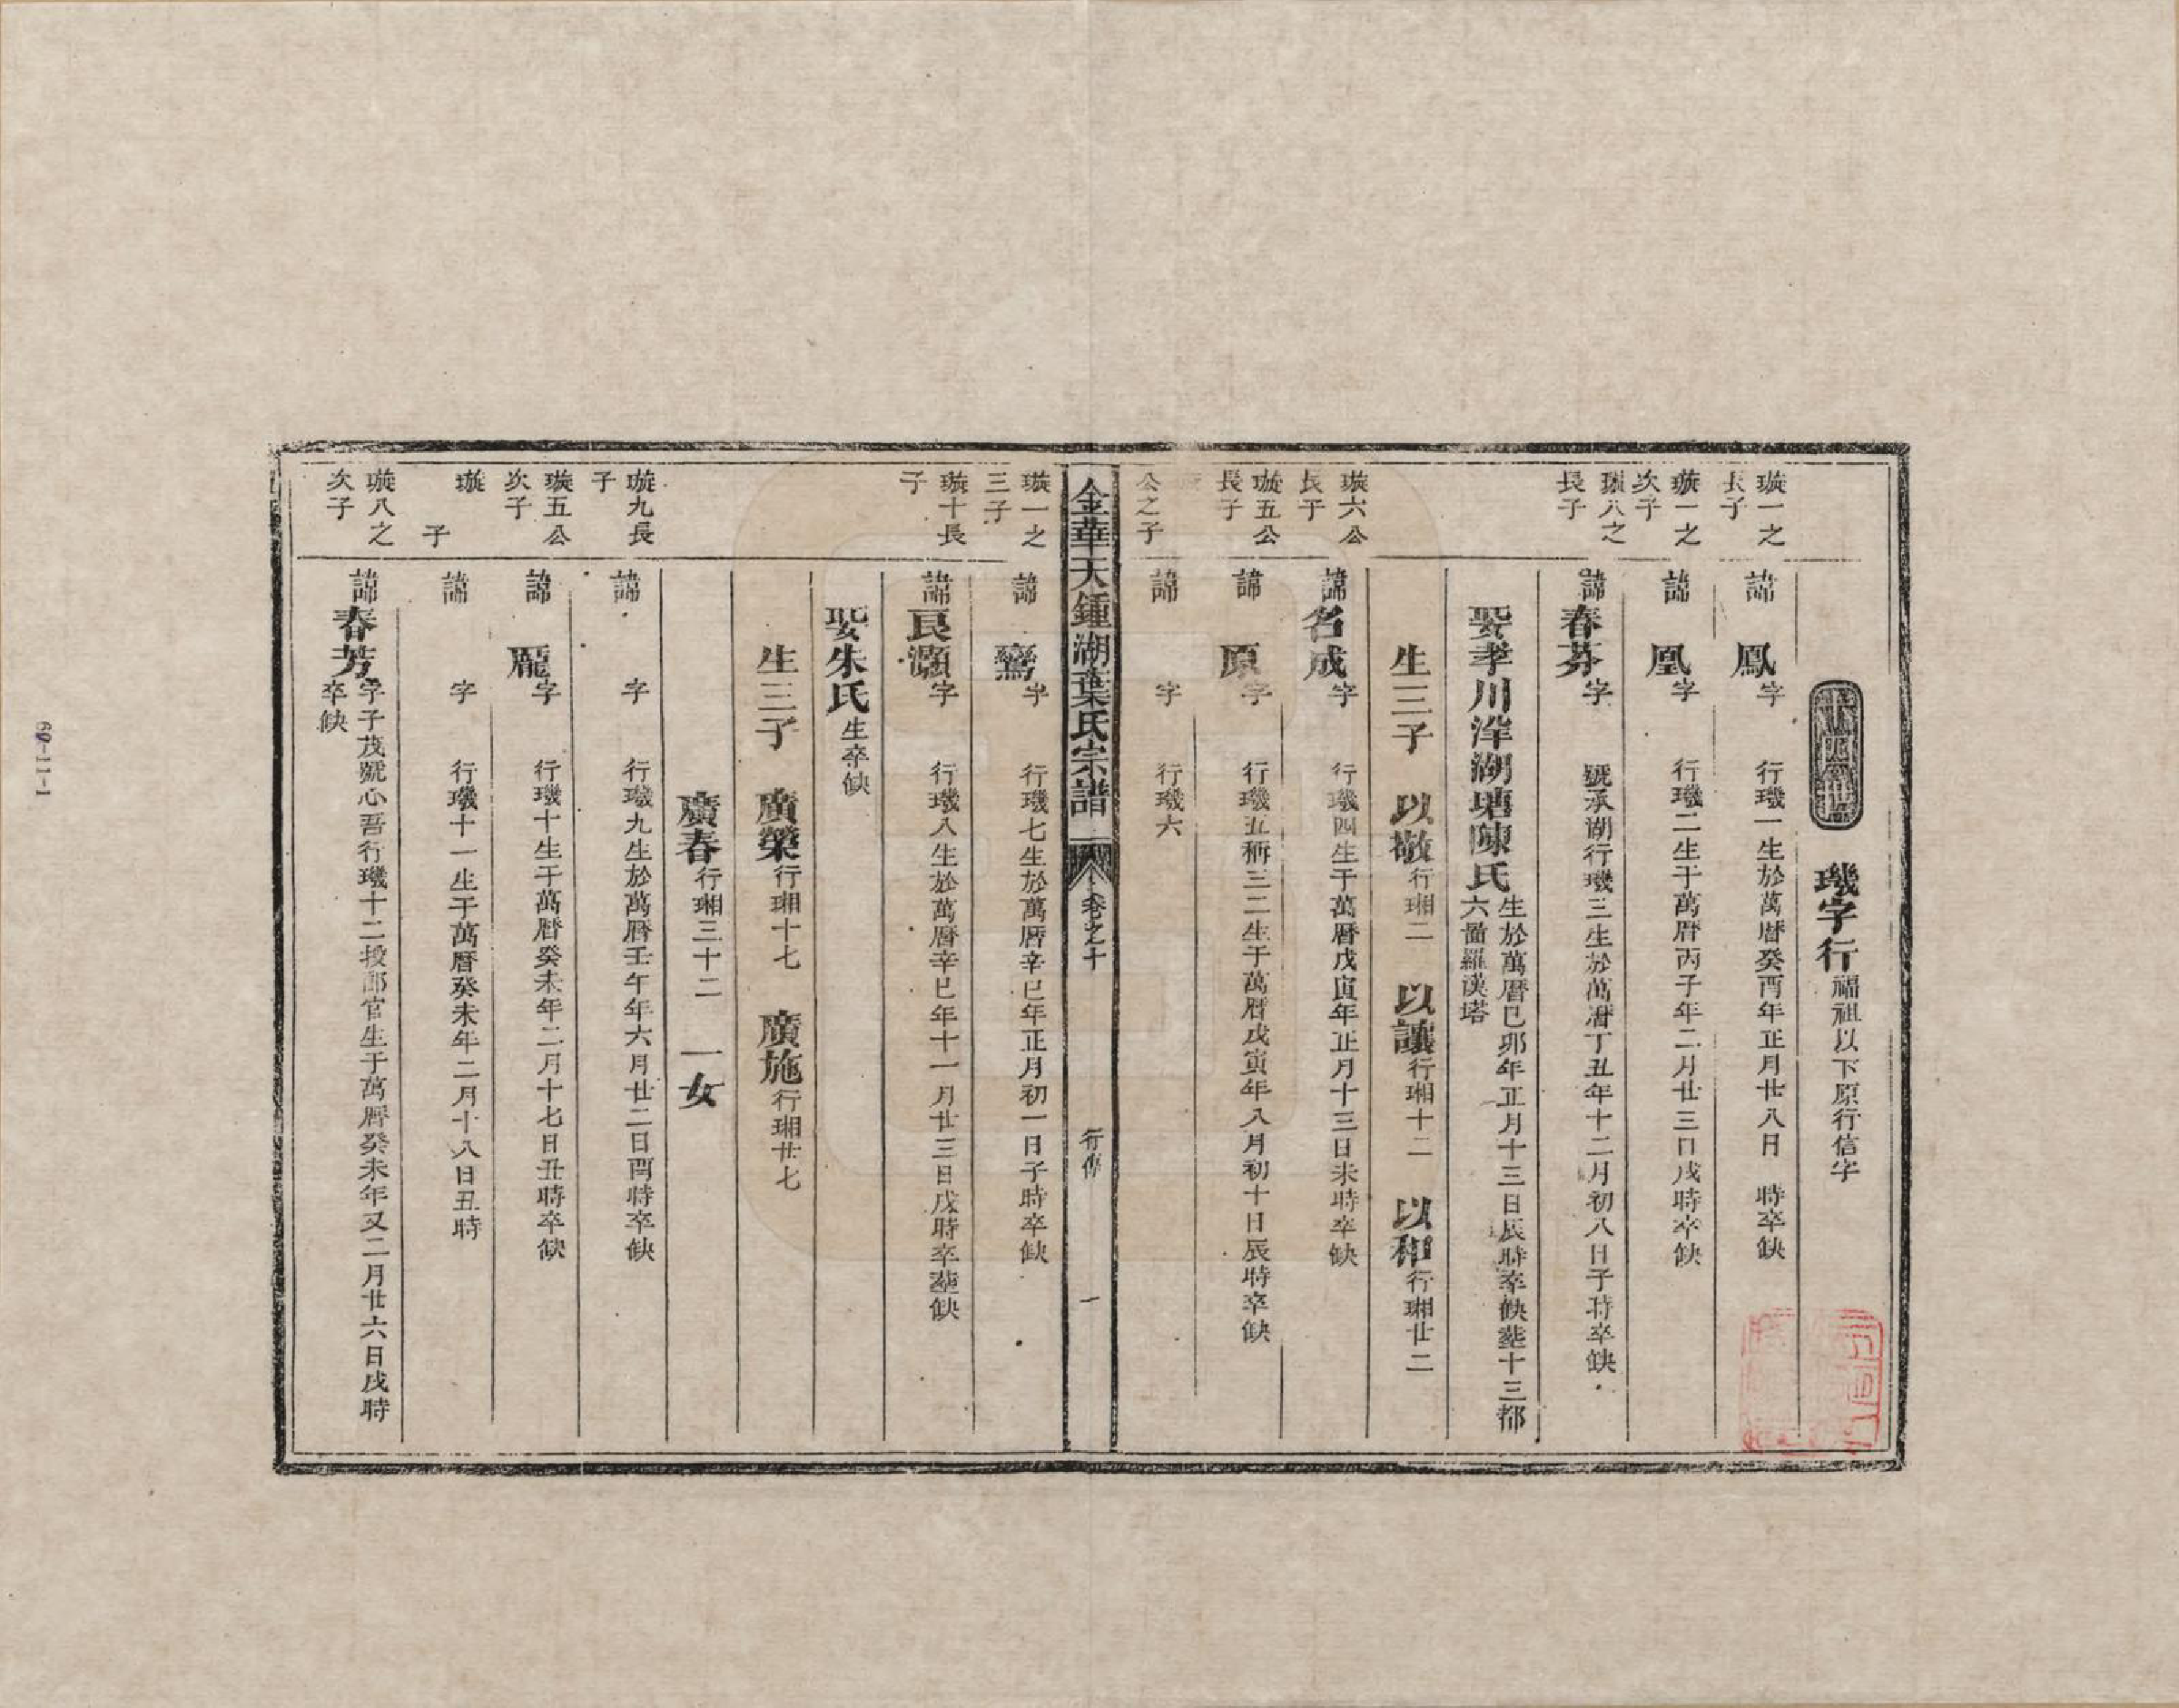 十四世　璣字行　福祖以下原行信字
璇一之長子　諱　鳳　字　行璣一生於萬曆癸酉年正月廿八日　時卒缺
璇一之次子　諱　凰　字　行璣二生于萬曆丙子年二月廿三日戌時卒缺
璇八之長子　諱春芬　字　號承湖行璣三生於萬曆丁丑年十二月初八日子時卒缺
娶孝川洋湖塘陳氏　生於萬曆己卯年正月十三日辰時卒缺塟十三都六啚羅漢塔
生三子　以敬行瑚二　以讓行瑚十二　以和行瑚廿二
璇六公長子　諱名成　字　行璣四生于萬曆戊寅年正月十三日未時卒缺
璇五公長子　諱　原　字　行璣五稱三二生于萬曆戊寅年八月初十日辰時卒缺
公之子　諱　字　行璣六
金華天鍾湖葉氏宗譜　卷之十　行傳　一
璇一之三子　諱　鸞　字　行璣七生於萬曆辛巳年正月初一日子時卒缺
璇十長子　諱良灝　字　行璣八生於萬曆辛巳年十一月廿三日戌時卒塟缺
娶朱氏　生卒缺
生三子　廣榮行瑚十七　廣施行瑚廿七
廣春行瑚三十二　一女
璇九長子　諱　字　行璣九生於萬曆壬午年六月廿二日酉時卒缺
璇五公次子　諱　龎　字　行璣十生于萬曆癸未年二月十七日丑時卒缺
璇　子　諱　字　行璣十一生于萬曆癸未年二月十八日丑時
璇八之次子　諱春芳　字子茂號心吾行璣十二授郎官生于萬曆癸未年又二月廿六日戌時卒缺